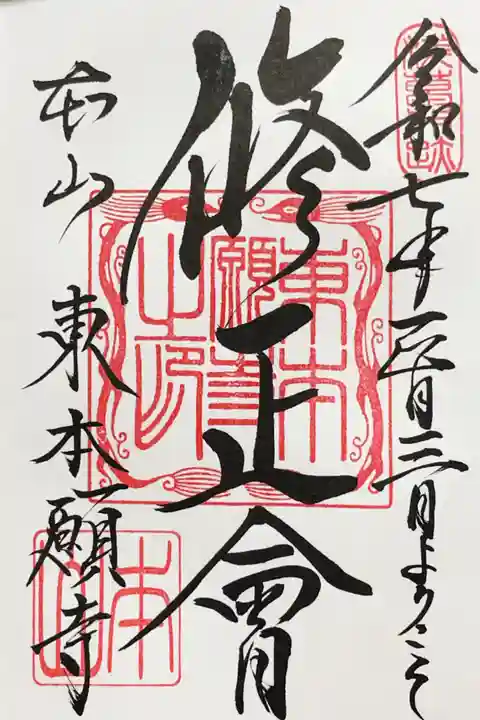 令和七年正月三日ようこそ
修正會
本山 東本願寺
東本願寺之印
本山